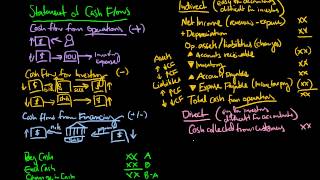 Statement of Cash Flows
Cash flow from operations (-+)
$ → IOU →
Cash flow for Investing (-)
Cash flows from Financing (-/+)
Beg Cash XX A
End Cash XX B
Change in Cash XX B-A
Indirect
Net Income (revenues - expenses) XX
+ Depreciation XX
Op. assets/liabilities (changes)
▲ Accounts receivable XX
▼ Inventory XX
▲ Accounts Payable XX
▼ Expense Payable XX
Total cash from operations XX
Assets
↑ ↓CF
↓ ↑CF
Liabilities
↑ ↑CF
↓ ↓CF
Direct
Cash collected from customers XX